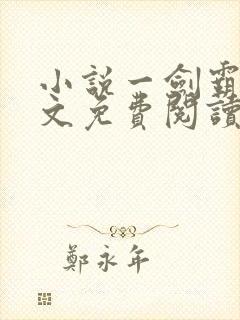 小说一剑霸
文免費閱讀
鄭永年